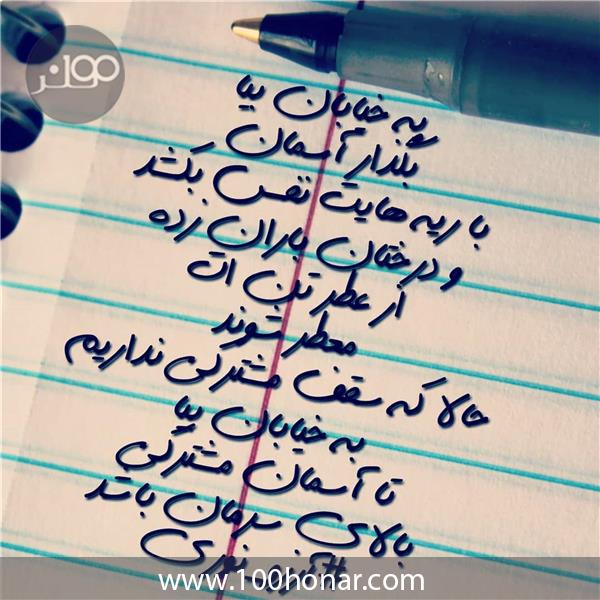 به خیابان بیا
بگذار آسمان
با ریه هایت نفس بکشد
و درختان باران زده
از عطر تن ات
معطر شوند
حالا که سقف مشترکی نداریم
به خیابان بیا
تا آسمان مشترکی
بالای سرمان باشد
نوری
www.100honar.com